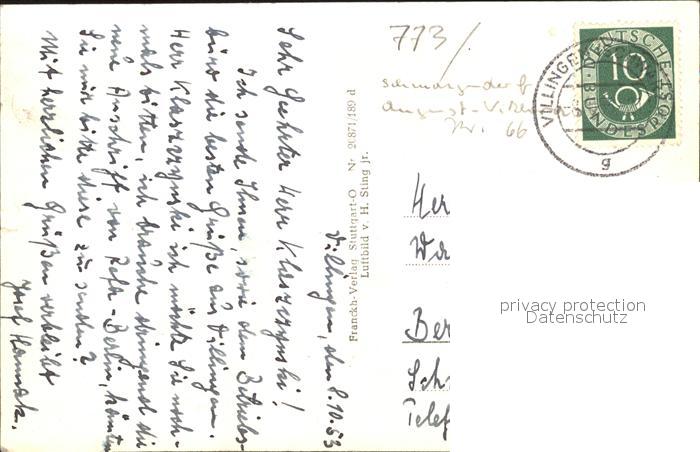 Villingen, den 8.10.53
Sehr Geehrter Herr Klaszzynski!
Ich sende Ihnen, sowie dem Betriebs-
büro die besten Grüße aus Villingen.
Herr Klaszzynski ich möchte Sie noch-
mals bitten, ich brauche dringend die
neue Anschrift von Refa-Berlin, könnten
Sie mir bitte diese zu senden?
Mit herzlichen Grüßen verbleibt
Josef
Franckh-Verlag Stuttgart-O Nr. 20871/189 d
Luftbild v. H. Sting jr.
773/
Schmargendorf
August-
Nr. 66
DEUTSCHE
BUNDESPOST
10
VILLINGEN
g
Her
Ber
Sch
Telef
privacy protection
Datenschutz